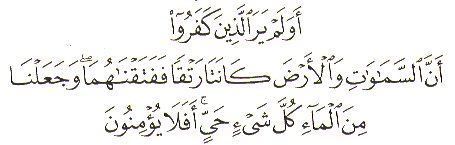 أَوَلَمْ يَرَ ٱلَّذِينَ كَفَرُوٓا۟
أَنَّ ٱلسَّمَـٰوَٰتِ وَٱلْأَرْضَ كَانَتَا رَتْقًا فَفَتَقْنَـٰهُمَا ۖ وَجَعَلْنَا
مِنَ ٱلْمَآءِ كُلَّ شَىْءٍ حَىٍّ ۚ أَفَلَا يُؤْمِنُونَ